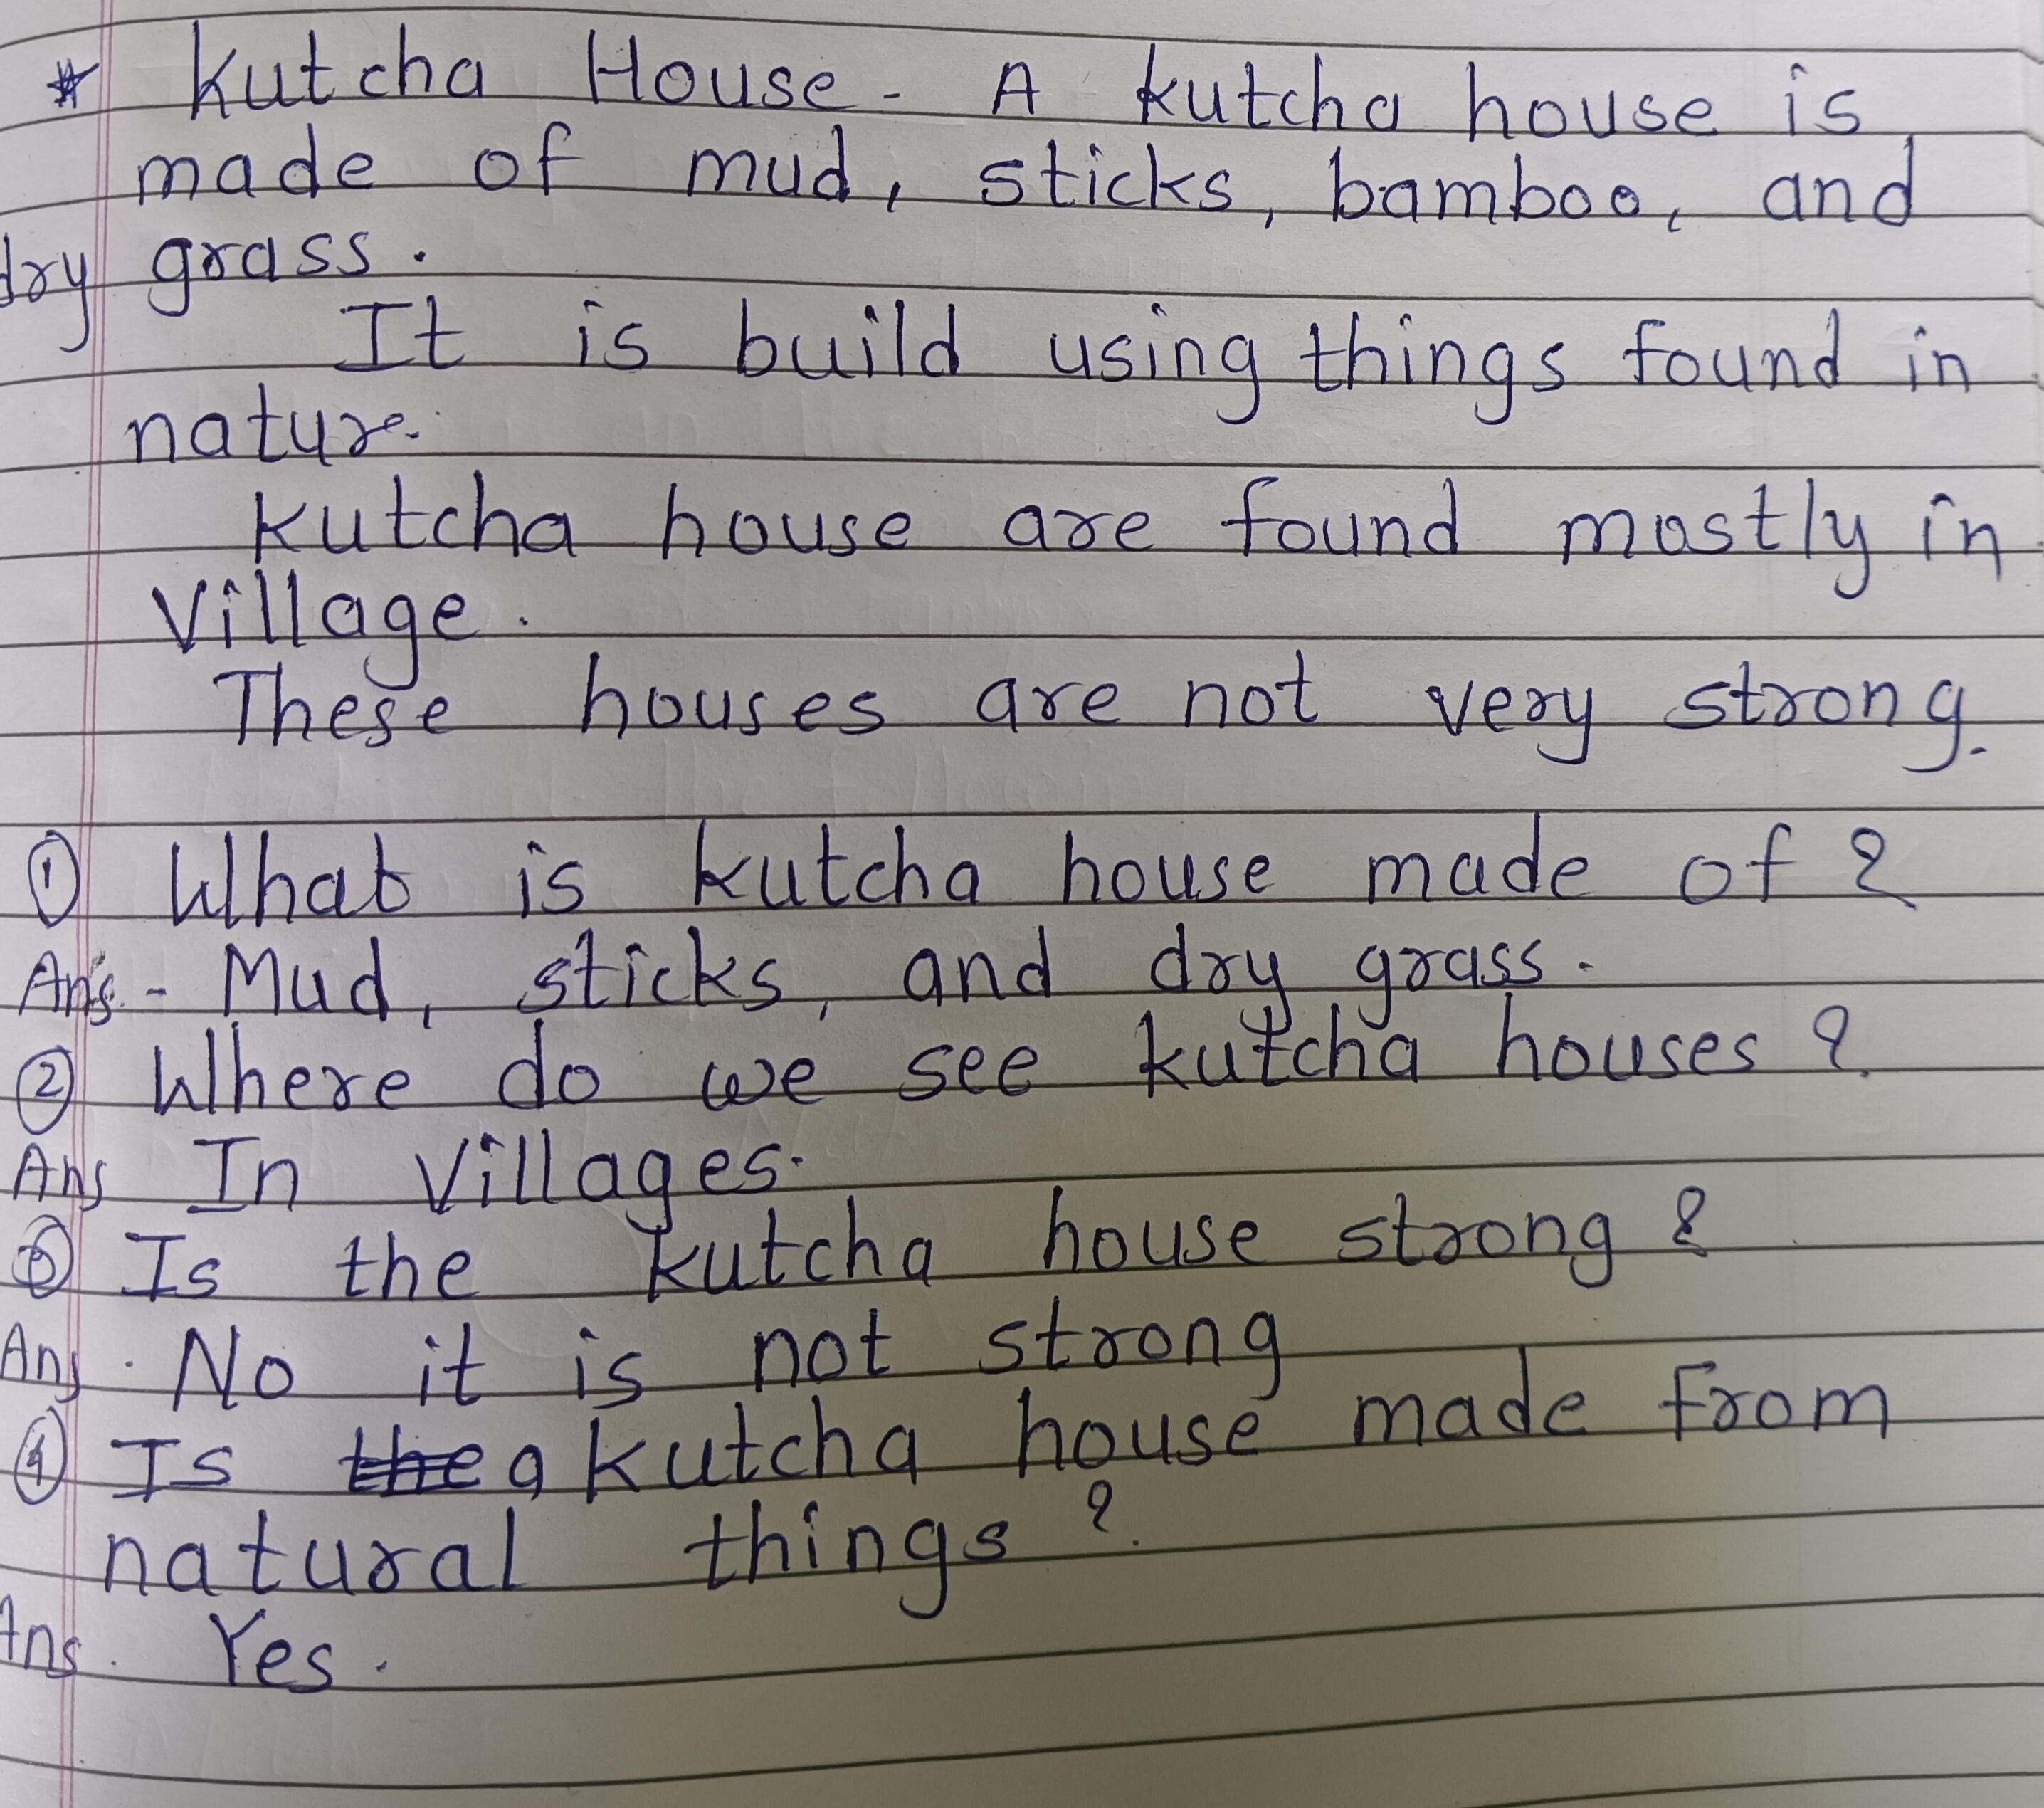 * Kutcha House - A kutcha house is
made of mud, sticks, bamboo, and
dry grass.
It is build using things found in
nature.
Kutcha house are found mostly in
Village.
These houses are not very strong.
① What is kutcha house made of ?
Ans. - Mud, sticks, and dry grass.
② Where do we see kutcha houses ?
Ans In Villages.
③ Is the kutcha house strong ?
Ans. No it is not strong
④ Is the a kutcha house made from
natural things ?
Ans. Yes.